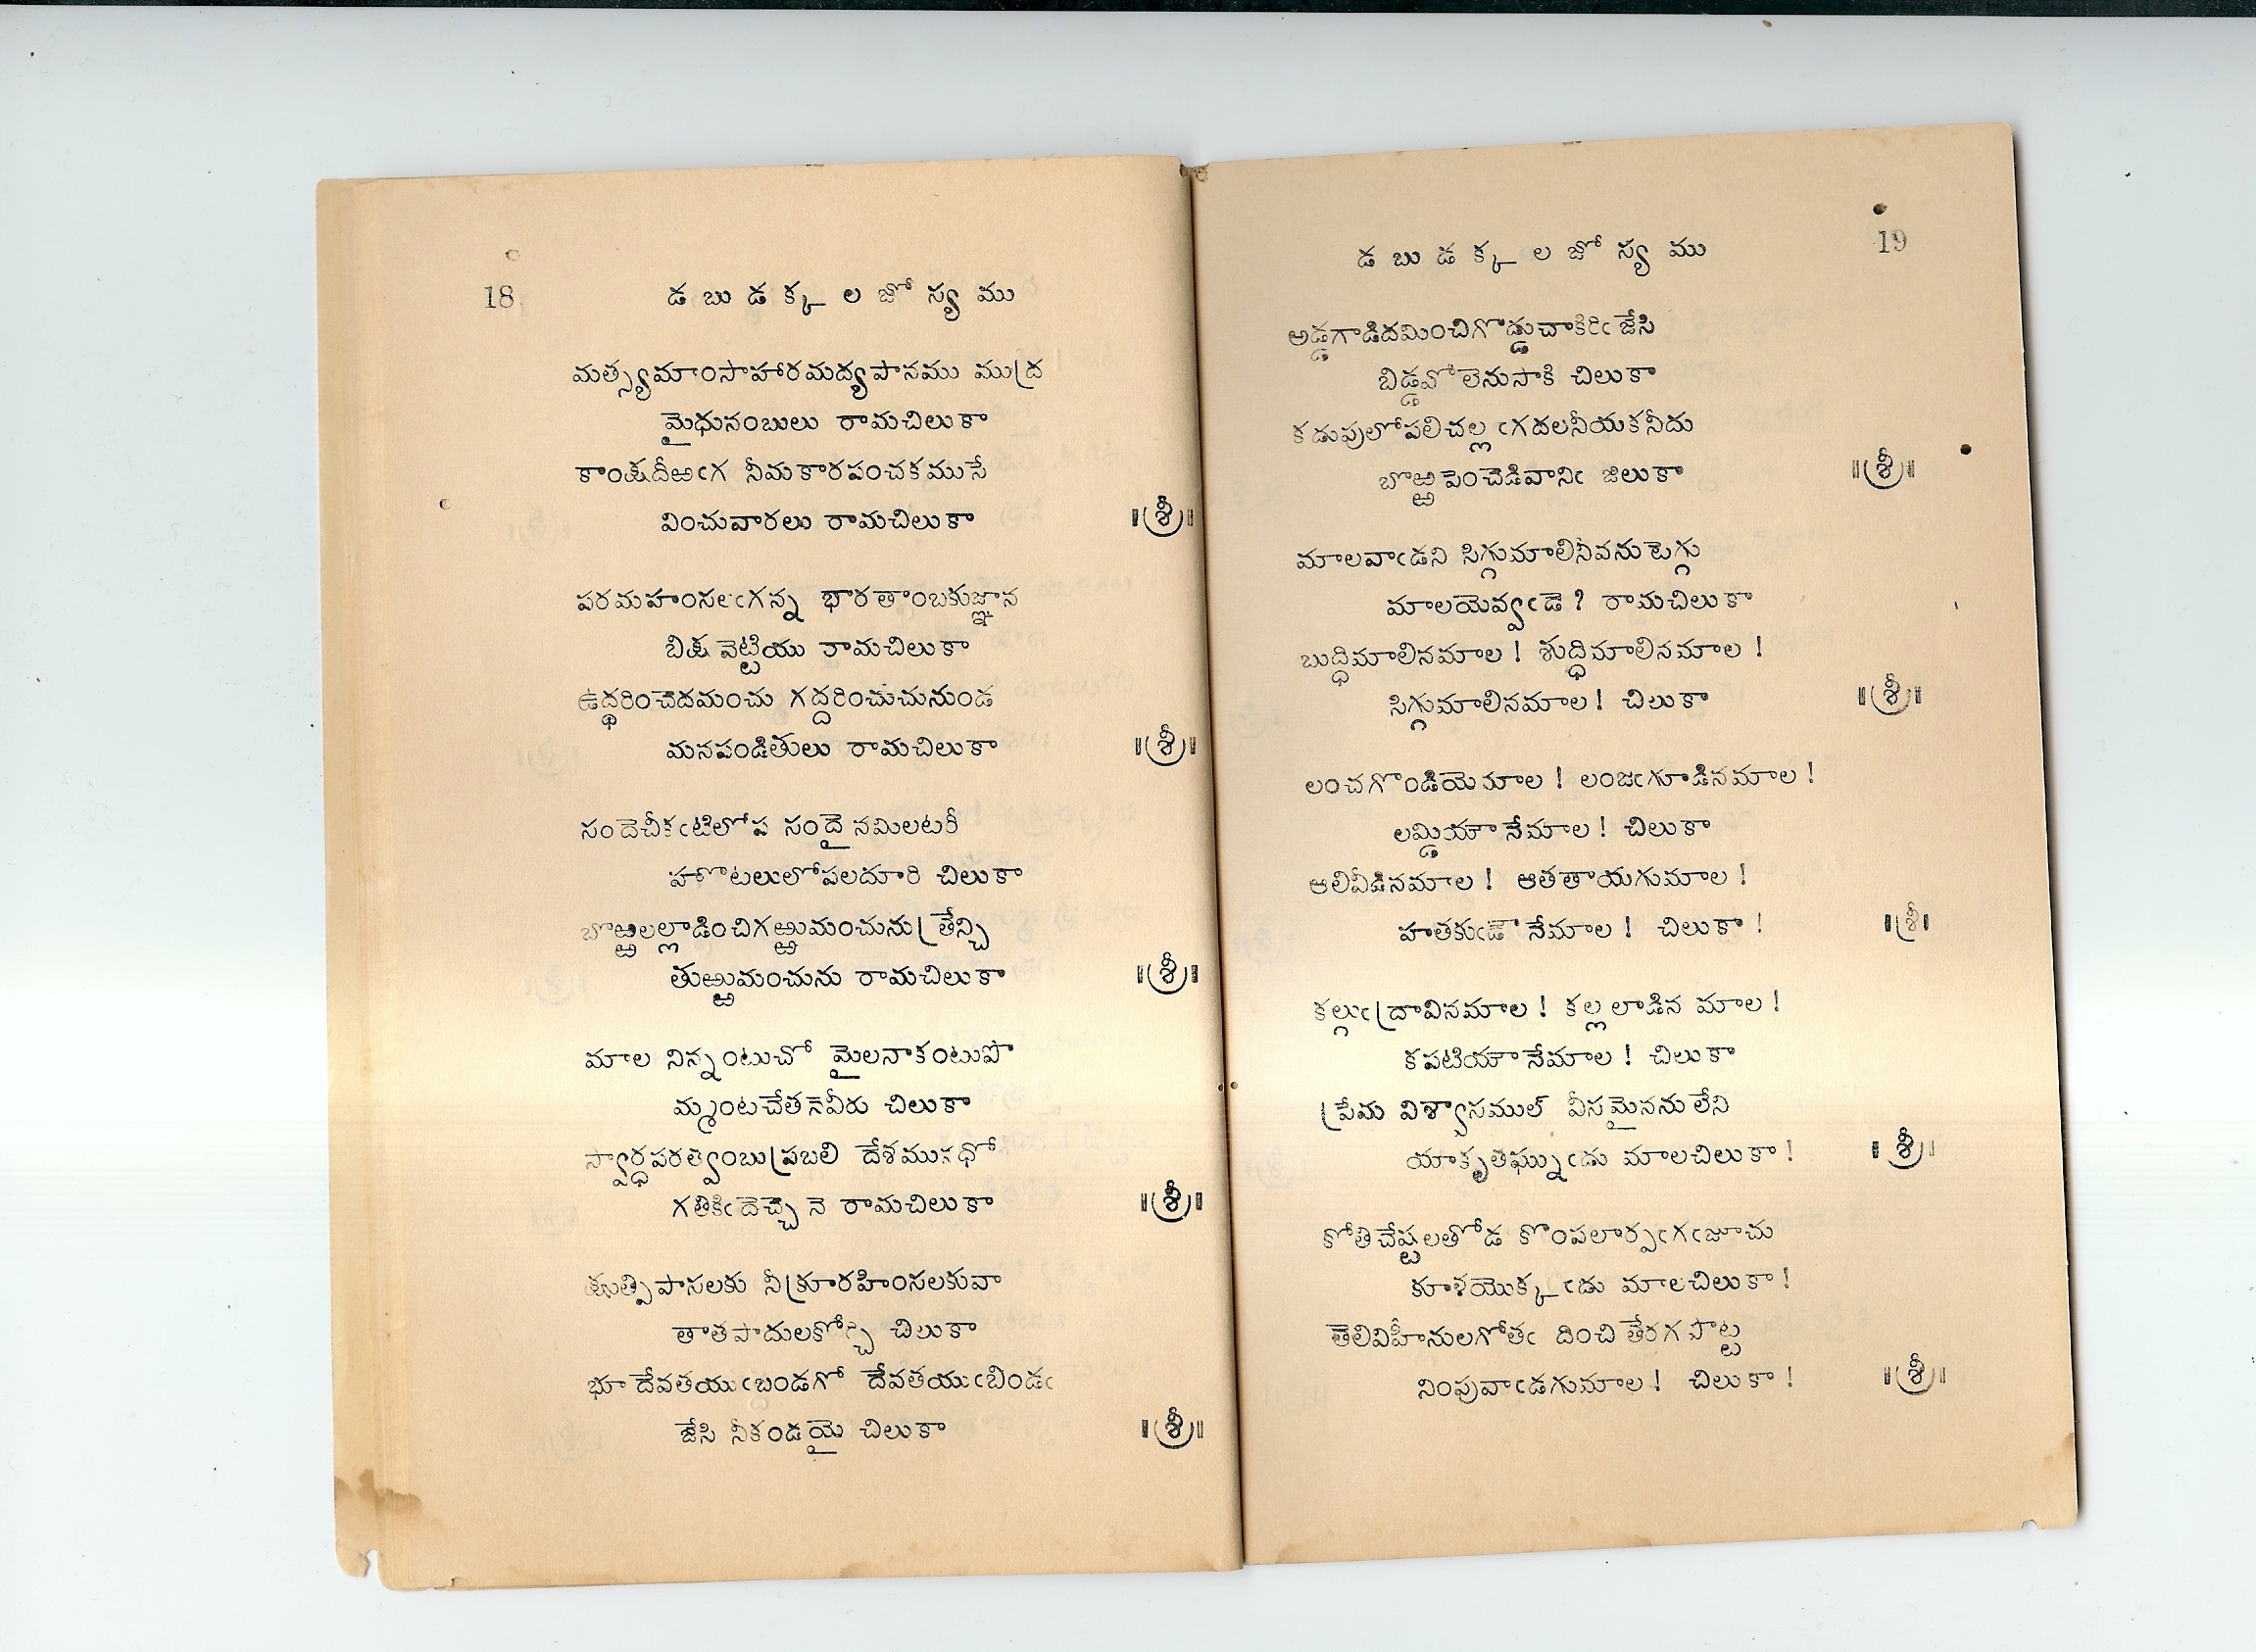 18 డ బు డ క్క ల జో స్య ము
మత్స్యమాంసాహారమద్యపానము ముద్ర
మైధునంబులు రామచిలుకా
కాంక్షదీఱఁగ నీమకారపంచకముసే
వించువారలు రామచిలుకా ॥శ్రీ॥
పరమహంసలఁగన్న భారతాంబకుజ్ఞాన
బిక్ష వెట్టియు రామచిలుకా
ఉద్ధరించెదమంచు గద్దరించుచునుండ
మనపండితులు రామచిలుకా ॥శ్రీ॥
సందెచీకఁటిలోప సందై నమిలటరీ
హొటలులోపలదూరి చిలుకా
బొఱ్ఱలల్లాడించిగఱ్ఱుమంచును త్రేన్చి
తుఱ్ఱుమంచును రామచిలుకా ॥శ్రీ॥
మాల నిన్నంటుచో మైలనాకంటుపొ
మ్మంటచేతనెవీరు చిలుకా
స్వార్ధపరత్వంబుప్రబలి దేశమునధో
గతికిఁదెచ్చెనె రామచిలుకా ॥శ్రీ॥
క్షుత్పిపాసలకు నీక్రూరహింసలకువా
తాతపాదులకోర్చి చిలుకా
భూదేవతయుఁబండగో దేవతయుఁబిండఁ
జేసి నీకండయై చిలుకా ॥శ్రీ॥
డ బు డ క్క ల జో స్య ము 19
అడ్డగాడిదమించిగొడ్డుచాకిరిఁ జేసి
బిడ్డవోలెనుసాకి చిలుకా
కడుపులోపలిచల్లఁగదలనీయకనీదు
బొఱ్ఱపెంచెడివానిఁ జిలుకా ॥శ్రీ॥
మాలవాఁడని సిగ్గుమాలినీవనుటెగ్గు
మాలయెవ్వఁడె? రామచిలుకా
బుద్ధిమాలినమాల! శుద్ధిమాలినమాల!
సిగ్గుమాలినమాల! చిలుకా ॥శ్రీ॥
లంచగొండియెమాల! లంజఁగూడినమాల!
లమ్డియౌనేమాల! చిలుకా
ఆలివీడినమాల! ఆతతాయగుమాల!
హతకుఁడౌనేమాల! చిలుకా! ॥శ్రీ॥
కల్లుఁద్రావినమాల! కల్లలాడిన మాల!
కపటియౌనేమాల! చిలుకా
ప్రేమ విశ్వాసముల్ వీసమైనను లేని
యాకృతఘ్నుఁడు మాలచిలుకా! ॥శ్రీ॥
కోతిచేష్టలతోడ కొంపలార్పఁగఁజూచు
కూళయొక్కఁడు మాలచిలుకా!
తెలివిహీనులగోతఁ దించి తేరగపొట్ట
నింపువాఁడగుమాల! చిలుకా! ॥శ్రీ॥